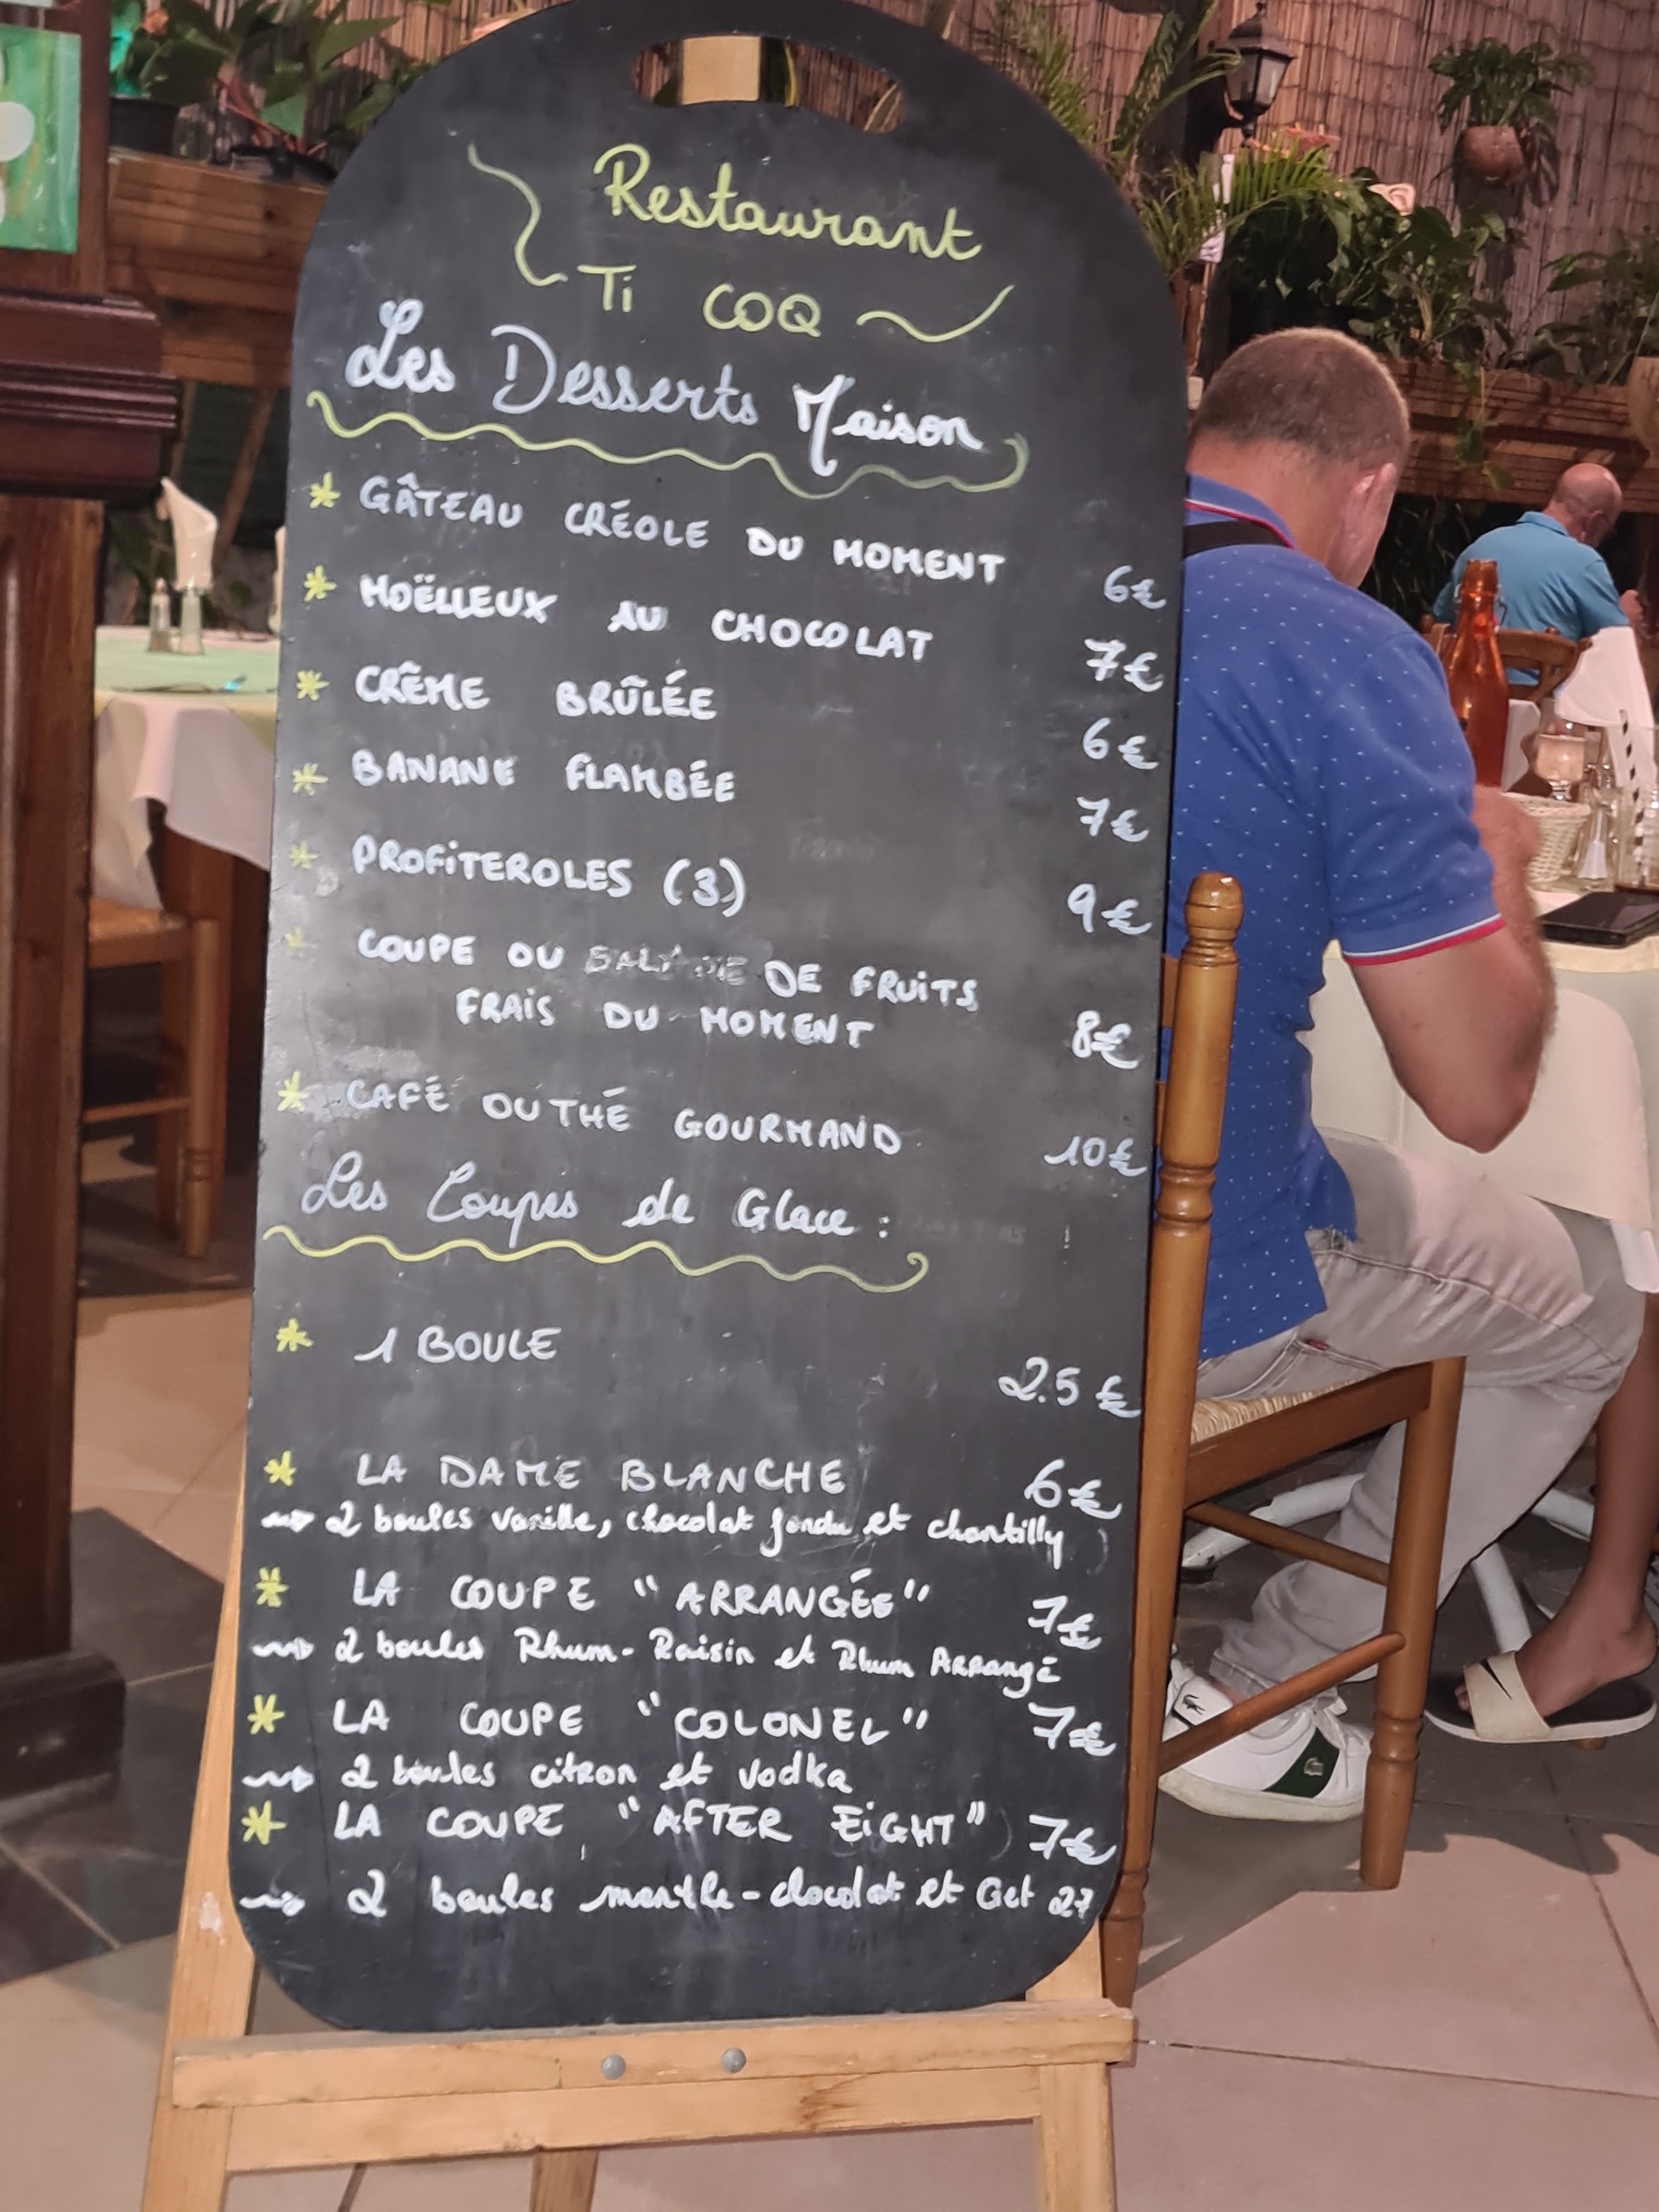 Restaurant
Ti COQ
Les Desserts Maison
* GÂTEAU CRÉOLE DU MOMENT 6€
* MOËLLEUX AU CHOCOLAT 7€
* CRÊME BRÛLÉE 6€
* BANANE FLAMBÉE 7€
* PROFiTEROLES (3) 9€
* COUPE OU DE FRUiTS
FRAiS DU MOMENT 8€
* CAFÉ OU THÉ GOURMAND 10€
Les Coupes de Glace :
* 1 BOULE 2.5€
* LA DAME BLANCHE 6€
→ 2 boules vanille, chocolat fondu et chantilly
* LA COUPE "ARRANGÉE" 7€
→ 2 boules Rhum-Raisin et Rhum Arrangé
* LA COUPE "COLONEL" 7€
→ 2 boules citron et vodka
* LA COUPE "AFTER EiGHT" 7€
→ 2 boules menthe-chocolat et Get 27